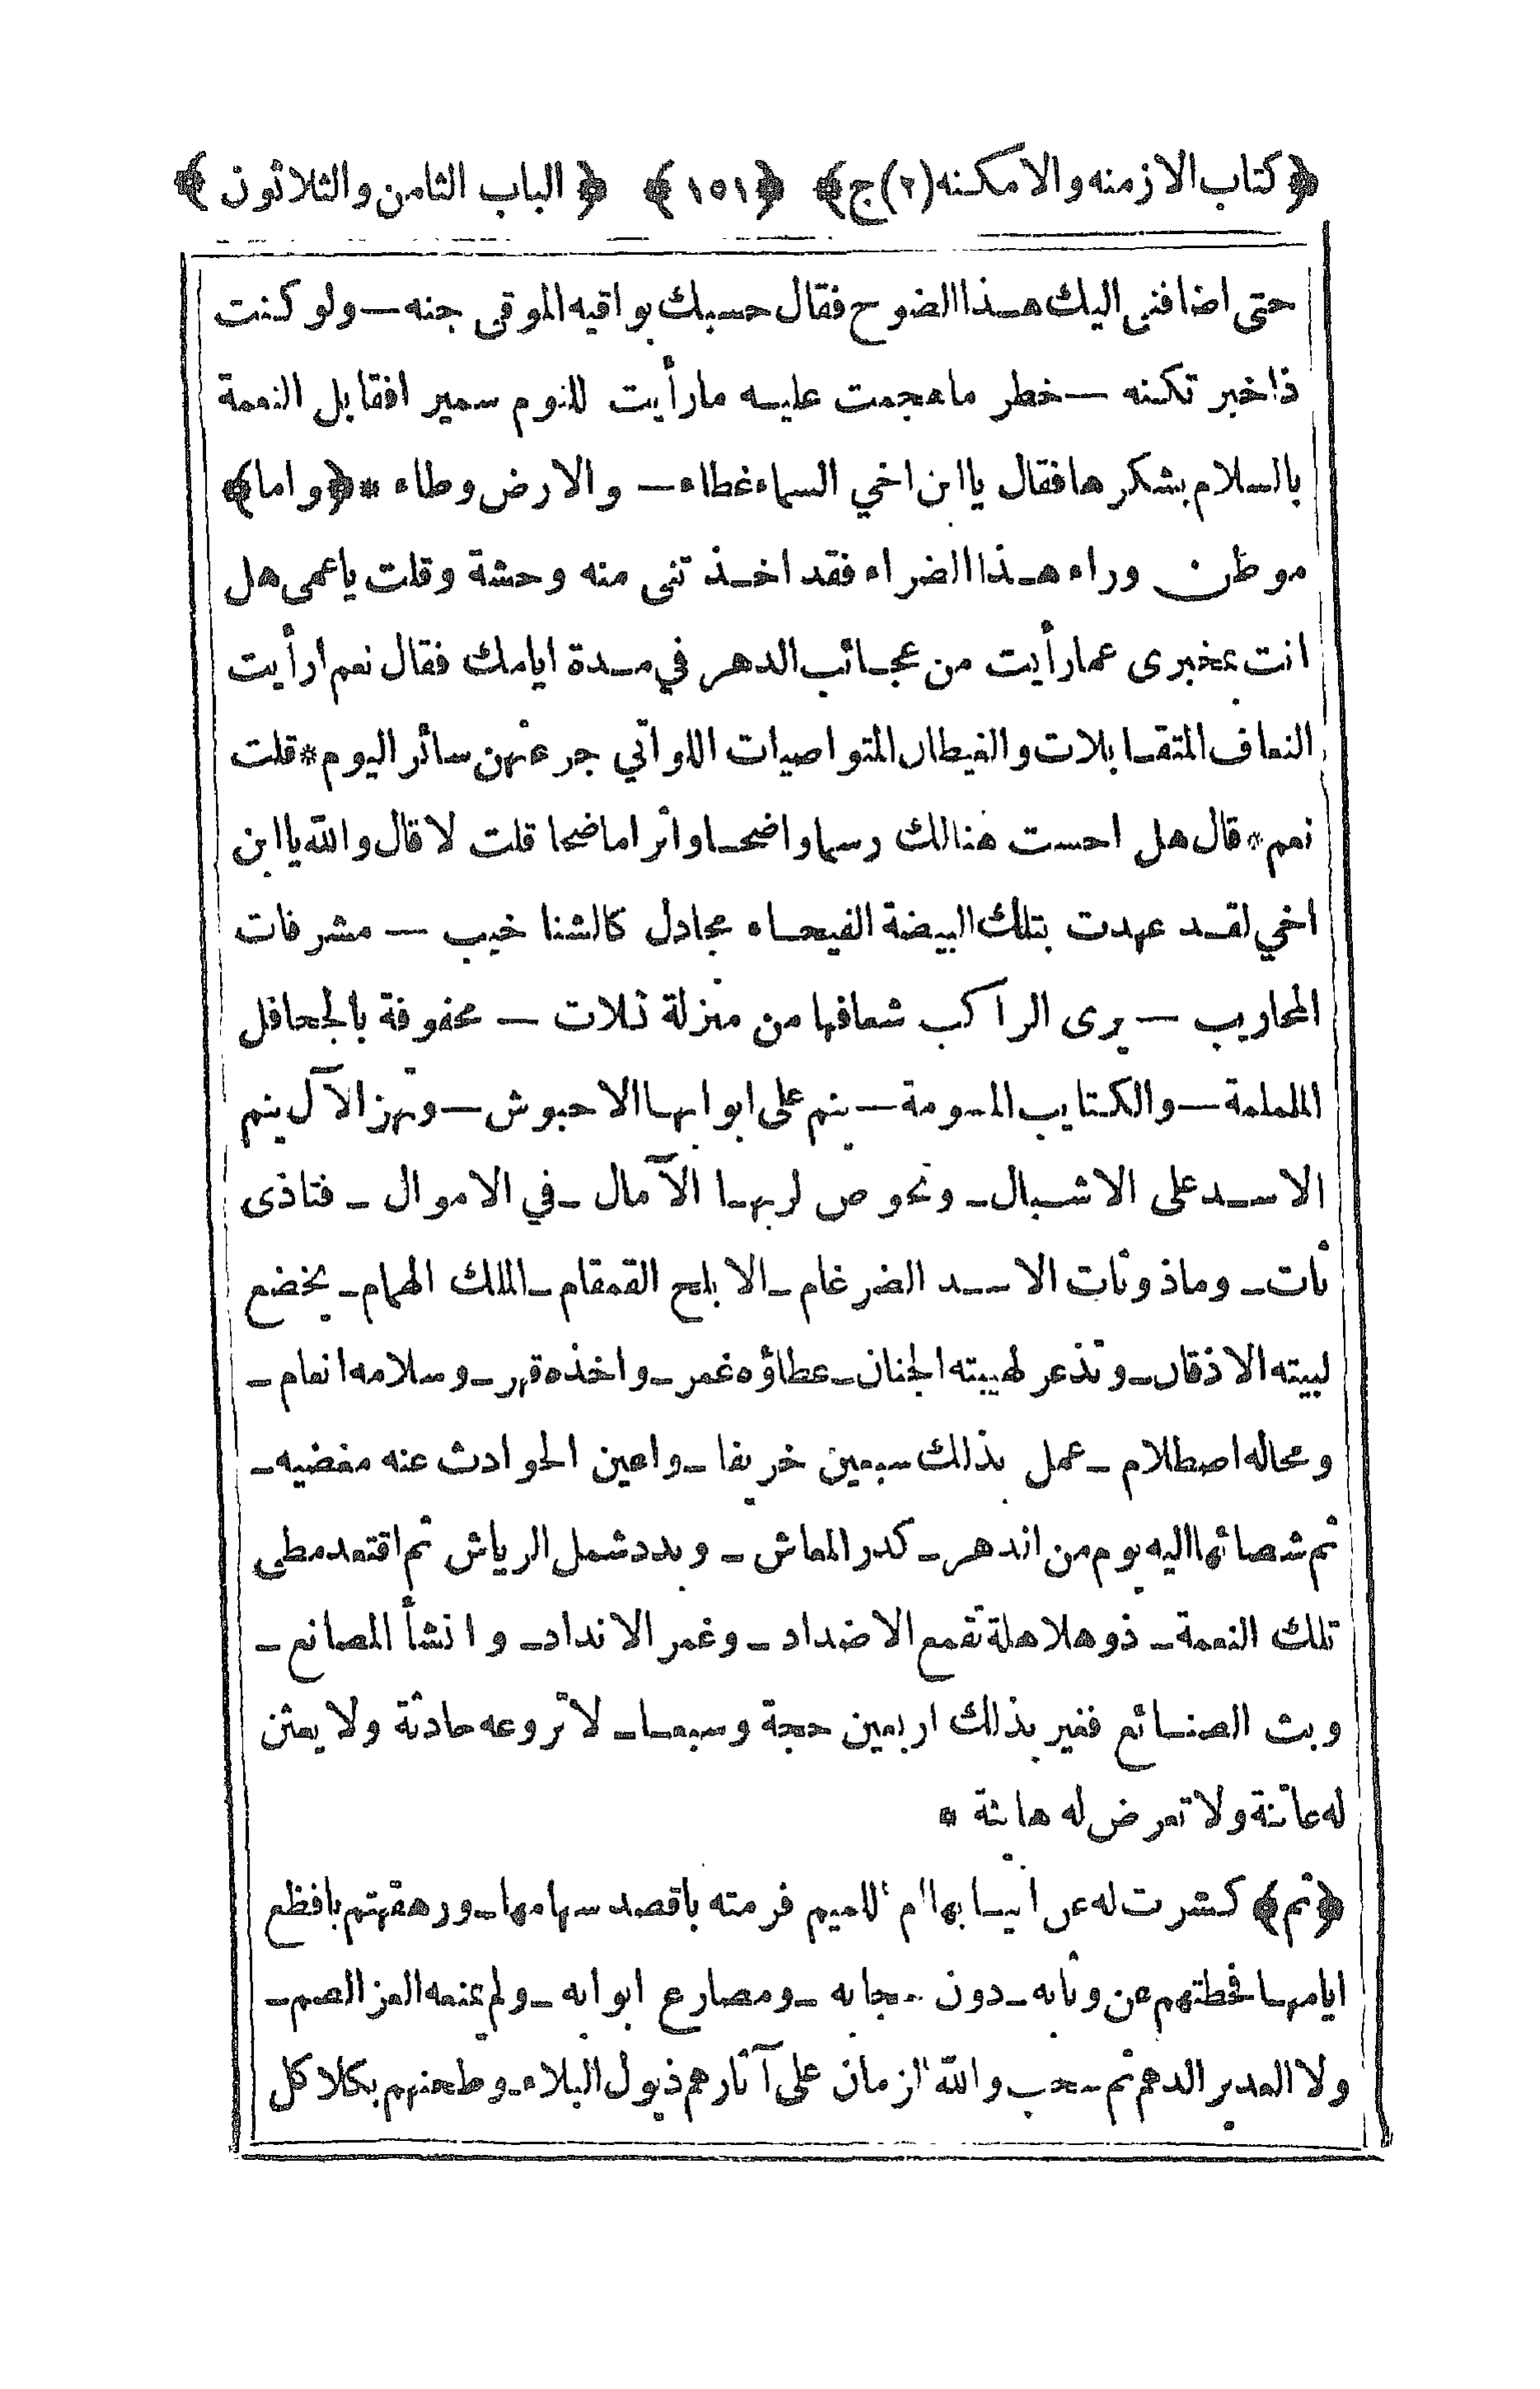 ﴿كتاب الازمنه والامكنه(٢)ج﴾ ﴿١٥١﴾ ﴿الباب الثامن والثلاثون﴾
حتى اضافنى اليك هذا الضوح فقال حسبك بواقيه الموقى جنه — ولو كنت
ذاخبر تكنه — خطر ماهجمت عليه مارأيت للنوم سمير افقابل النعمة
بالسلام بشكرها فقال يا ابن اخي السماء غطاء — والارض وطاء * ﴿واما﴾
موطن وراء هذا الضراء فقد اخذتنى منه وحشة وقلت ياعمى هل
انت بمخبرى عمارأيت من عجائب الدهر في مدة ايامك فقال نعم ارأيت
النعاف المتقابلات والغيطان المتواصيات اللواتي جرعتهن سائر اليوم * قلت
نعم * قال هل احست هنالك رسما واضحا واثرا ماضحا قلت لا قال والله يا ابن
اخي لقد عهدت بتلك البيضة الفيحاء مجادل كالشنا خيب — مشرفات
المحاريب — يرى الراكب شعافها من منزلة ثلاث — محفوفة بالجحافل
الململمة — والكتايب المسومة — ينم على ابوابها الاحبوش — وتهز الآل ينم
الاسد على الاشبال — وتحوص لربها الآمال — في الاموال — فتاذى
نات — وماذونات الاسد الضرغام — الابلج القمقام — الملك الهمام — يخضع
لبيته الاذقان — وتذعر لهيبته الجنان — عطاؤه غمر — واخذه قهر — وسلامه انعام —
ومحاله اصطلام — عمل بذلك سبعين خريفا — واعين الحوادث عنه مغضيه —
ثم شصائها اليه يوم من اندهر — كدر المعاش — وبدد شمل الرياش ثم اقتعد مطى
تلك النعمة — ذوهلاهلة تقمع الاضداد — وغمر الانداد — وانشأ المصانع —
وبث الصنائع فغير بذلك اربعين حجة وسبعا — لا تروعه حادثة ولا يعثن
له عاثنة ولا تعرض له هائة *
﴿ثم﴾ كشرت له عن انيابها ام اللهيم فرمته باقصد سهامها — ورهقتهم بافظع
ايامها فحطتهم عن وثابه — دون حجابه — ومصارع ابوابه — ولم تمنعه العز الصم —
ولا العدير الدهم ثم سحب والله الزمان على آثارهم ذيول البلاء — وطحنهم بكلاكل